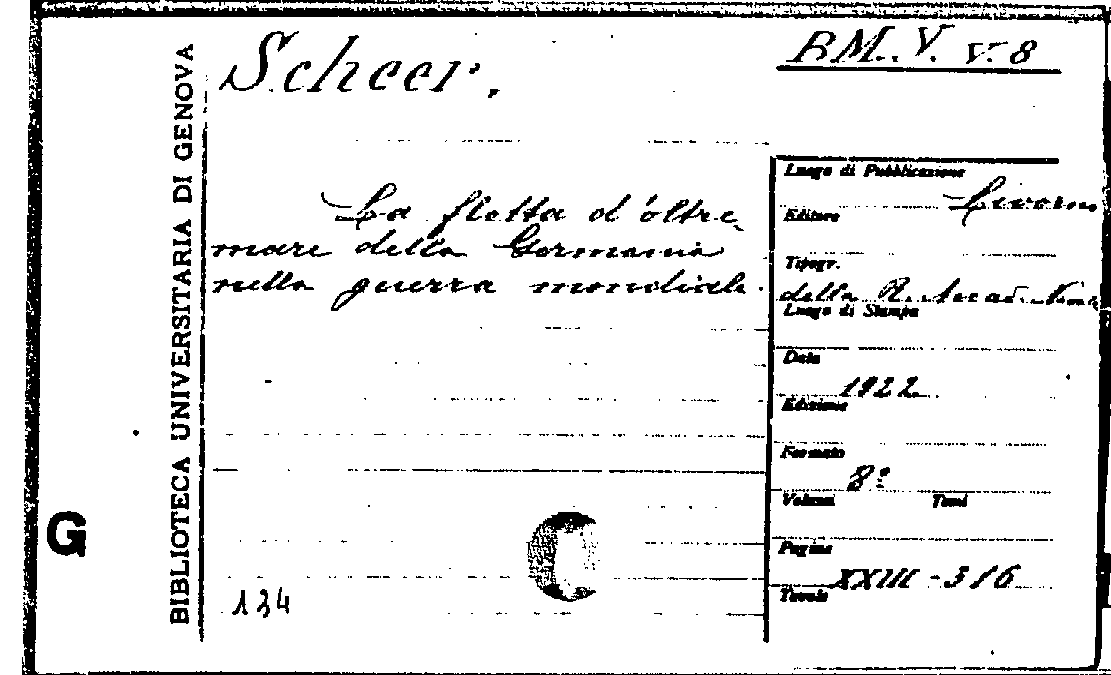 BIBLIOTECA UNIVERSITARIA DI GENOVA
G
Scheer.
B.M. V. V. 8
La flotta d'oltre
mare della Germania
nella guerra mondiale.
Luogo di Pubblicazione
Livorno
Editore
Tipogr.
della R. Accad. Nav.
Luogo di Stampa
Data
1922
Edizione
Formato
8º
Volumi Tomi
Pagine
XXIII - 316
Tavole
134